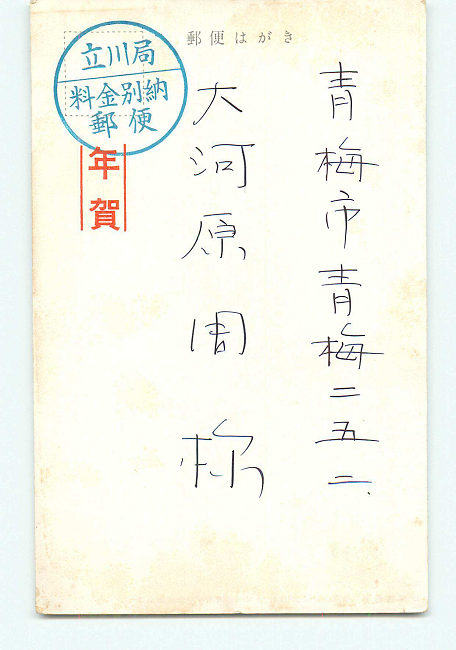 郵便はがき
立川局
料金別納
郵便
年賀
青梅市青梅二五二
大河原周様